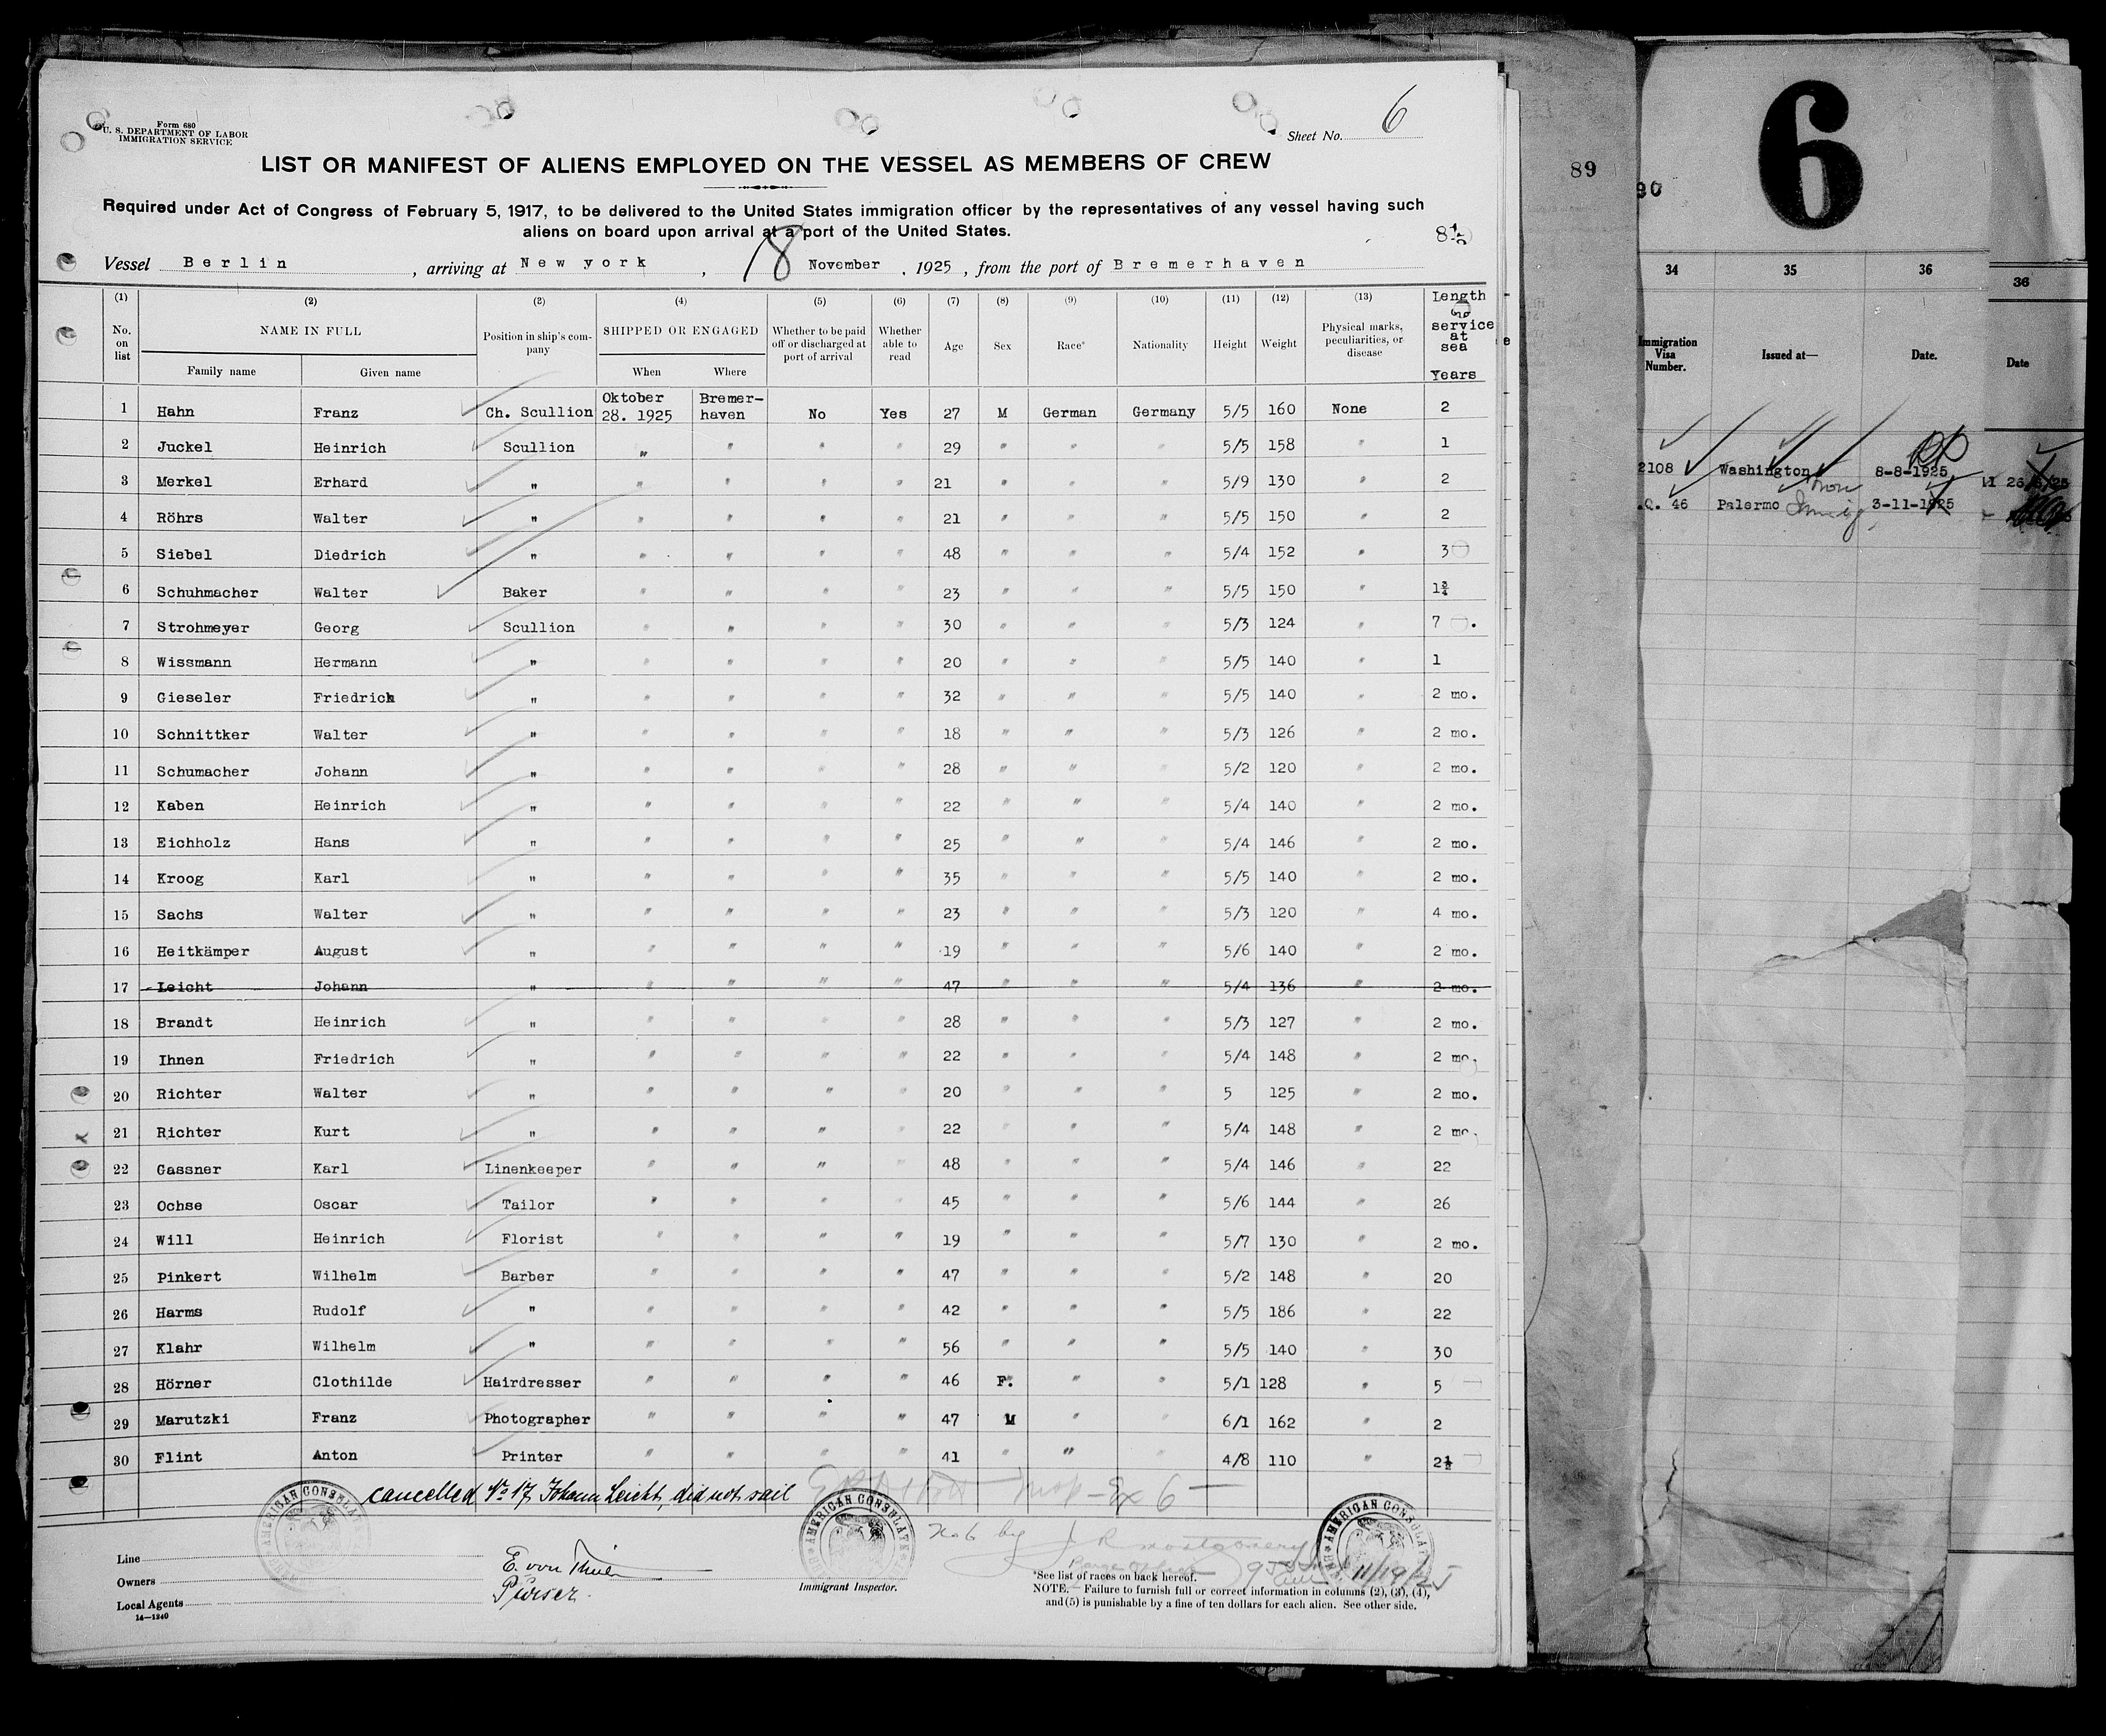 Form 680
U. S. DEPARTMENT OF LABOR
IMMIGRATION SERVICE
Sheet No. 6
LIST OR MANIFEST OF ALIENS EMPLOYED ON THE VESSEL AS MEMBERS OF CREW
Required under Act of Congress of February 5, 1917, to be delivered to the United States immigration officer by the representatives of any vessel having such
aliens on board upon arrival at a port of the United States.
Vessel Berlin , arriving at New york , 8 November , 1925 , from the port of Bremerhaven
(1) (2) (2) (4) (5) (6) (7) (8) (9) (10) (11) (12) (13) Length
No. on list NAME IN FULL Position in ship's company SHIPPED OR ENGAGED Whether to be paid off or discharged at port of arrival Whether able to read Age Sex Race* Nationality Height Weight Physical marks, peculiarities, or disease service at sea
Family name Given name When Where Years
1 Hahn Franz Ch. Scullion Oktober 28. 1925 Bremer-haven No Yes 27 M German Germany 5/5 160 None 2
2 Juckel Heinrich Scullion " " " " 29 " " " 5/5 158 " 1
3 Merkel Erhard " " " " " 21 " " " 5/9 130 " 2
4 Röhrs Walter " " " " " 21 " " " 5/5 150 " 2
5 Siebel Diedrich " " " " " 48 " " " 5/4 152 " 3
6 Schuhmacher Walter Baker " " " " 23 " " " 5/5 150 " 1¾
7 Strohmeyer Georg Scullion " " " " 30 " " " 5/3 124 " 7
8 Wissmann Hermann " " " " " 20 " " " 5/5 140 " 1
9 Gieseler Friedrich " " " " " 32 " " " 5/5 140 " 2 mo.
10 Schnittker Walter " " " " " 18 " " " 5/3 126 " 2 mo.
11 Schumacher Johann " " " " " 28 " " " 5/2 120 " 2 mo.
12 Kaben Heinrich " " " " " 22 " " " 5/4 140 " 2 mo.
13 Eichholz Hans " " " " " 25 " " " 5/4 146 " 2 mo.
14 Kroog Karl " " " " " 35 " " " 5/5 140 " 2 mo.
15 Sachs Walter " " " " " 23 " " " 5/3 120 " 4 mo.
16 Heitkämper August " " " " " 19 " " " 5/6 140 " 2 mo.
17 Leicht Johann " " " " " 47 " " " 5/4 136 " 2 mo.
18 Brandt Heinrich " " " " " 28 " " " 5/3 127 " 2 mo.
19 Ihnen Friedrich " " " " " 22 " " " 5/4 148 " 2 mo.
20 Richter Walter " " " " " 20 " " " 5 125 " 2 mo.
21 Richter Kurt " " " " " 22 " " " 5/4 148 " 2 mo.
22 Gassner Karl Linenkeeper " " " " 48 " " " 5/4 146 " 22
23 Ochse Oscar Tailor " " " " 45 " " " 5/6 144 " 26
24 Will Heinrich Florist " " " " 19 " " " 5/7 130 " 2 mo.
25 Pinkert Wilhelm Barber " " " " 47 " " " 5/2 148 " 20
26 Harms Rudolf " " " " " 42 " " " 5/5 186 " 22
27 Klahr Wilhelm " " " " " 56 " " " 5/5 140 " 30
28 Hörner Clothilde Hairdresser " " " " 46 F. " " 5/1 128 " 5
29 Marutzki Franz Photographer " " " " 47 M " " 6/1 162 " 2
30 Flint Anton Printer " " " " 41 " " " 4/8 110 " 2½
cancelled No 17 Johann Leicht, did not sail
AMERICAN CONSULATE
AMERICAN CONSULATE
AMERICAN CONSULATE
Line
Owners
Local Agents
14—1240
E. von Thülen
Purser.
Immigrant Inspector.
J R Montgomery
11/19/25
*See list of races on back hereof.
NOTE.—Failure to furnish full or correct information in columns (2), (3), (4),
and (5) is punishable by a fine of ten dollars for each alien. See other side.
89
90
6
34 35 36
Immigration Visa Number. Issued at— Date.
2108 Washington 8-8-1925
Q. 46 Palermo 3-11-1925
36
Date